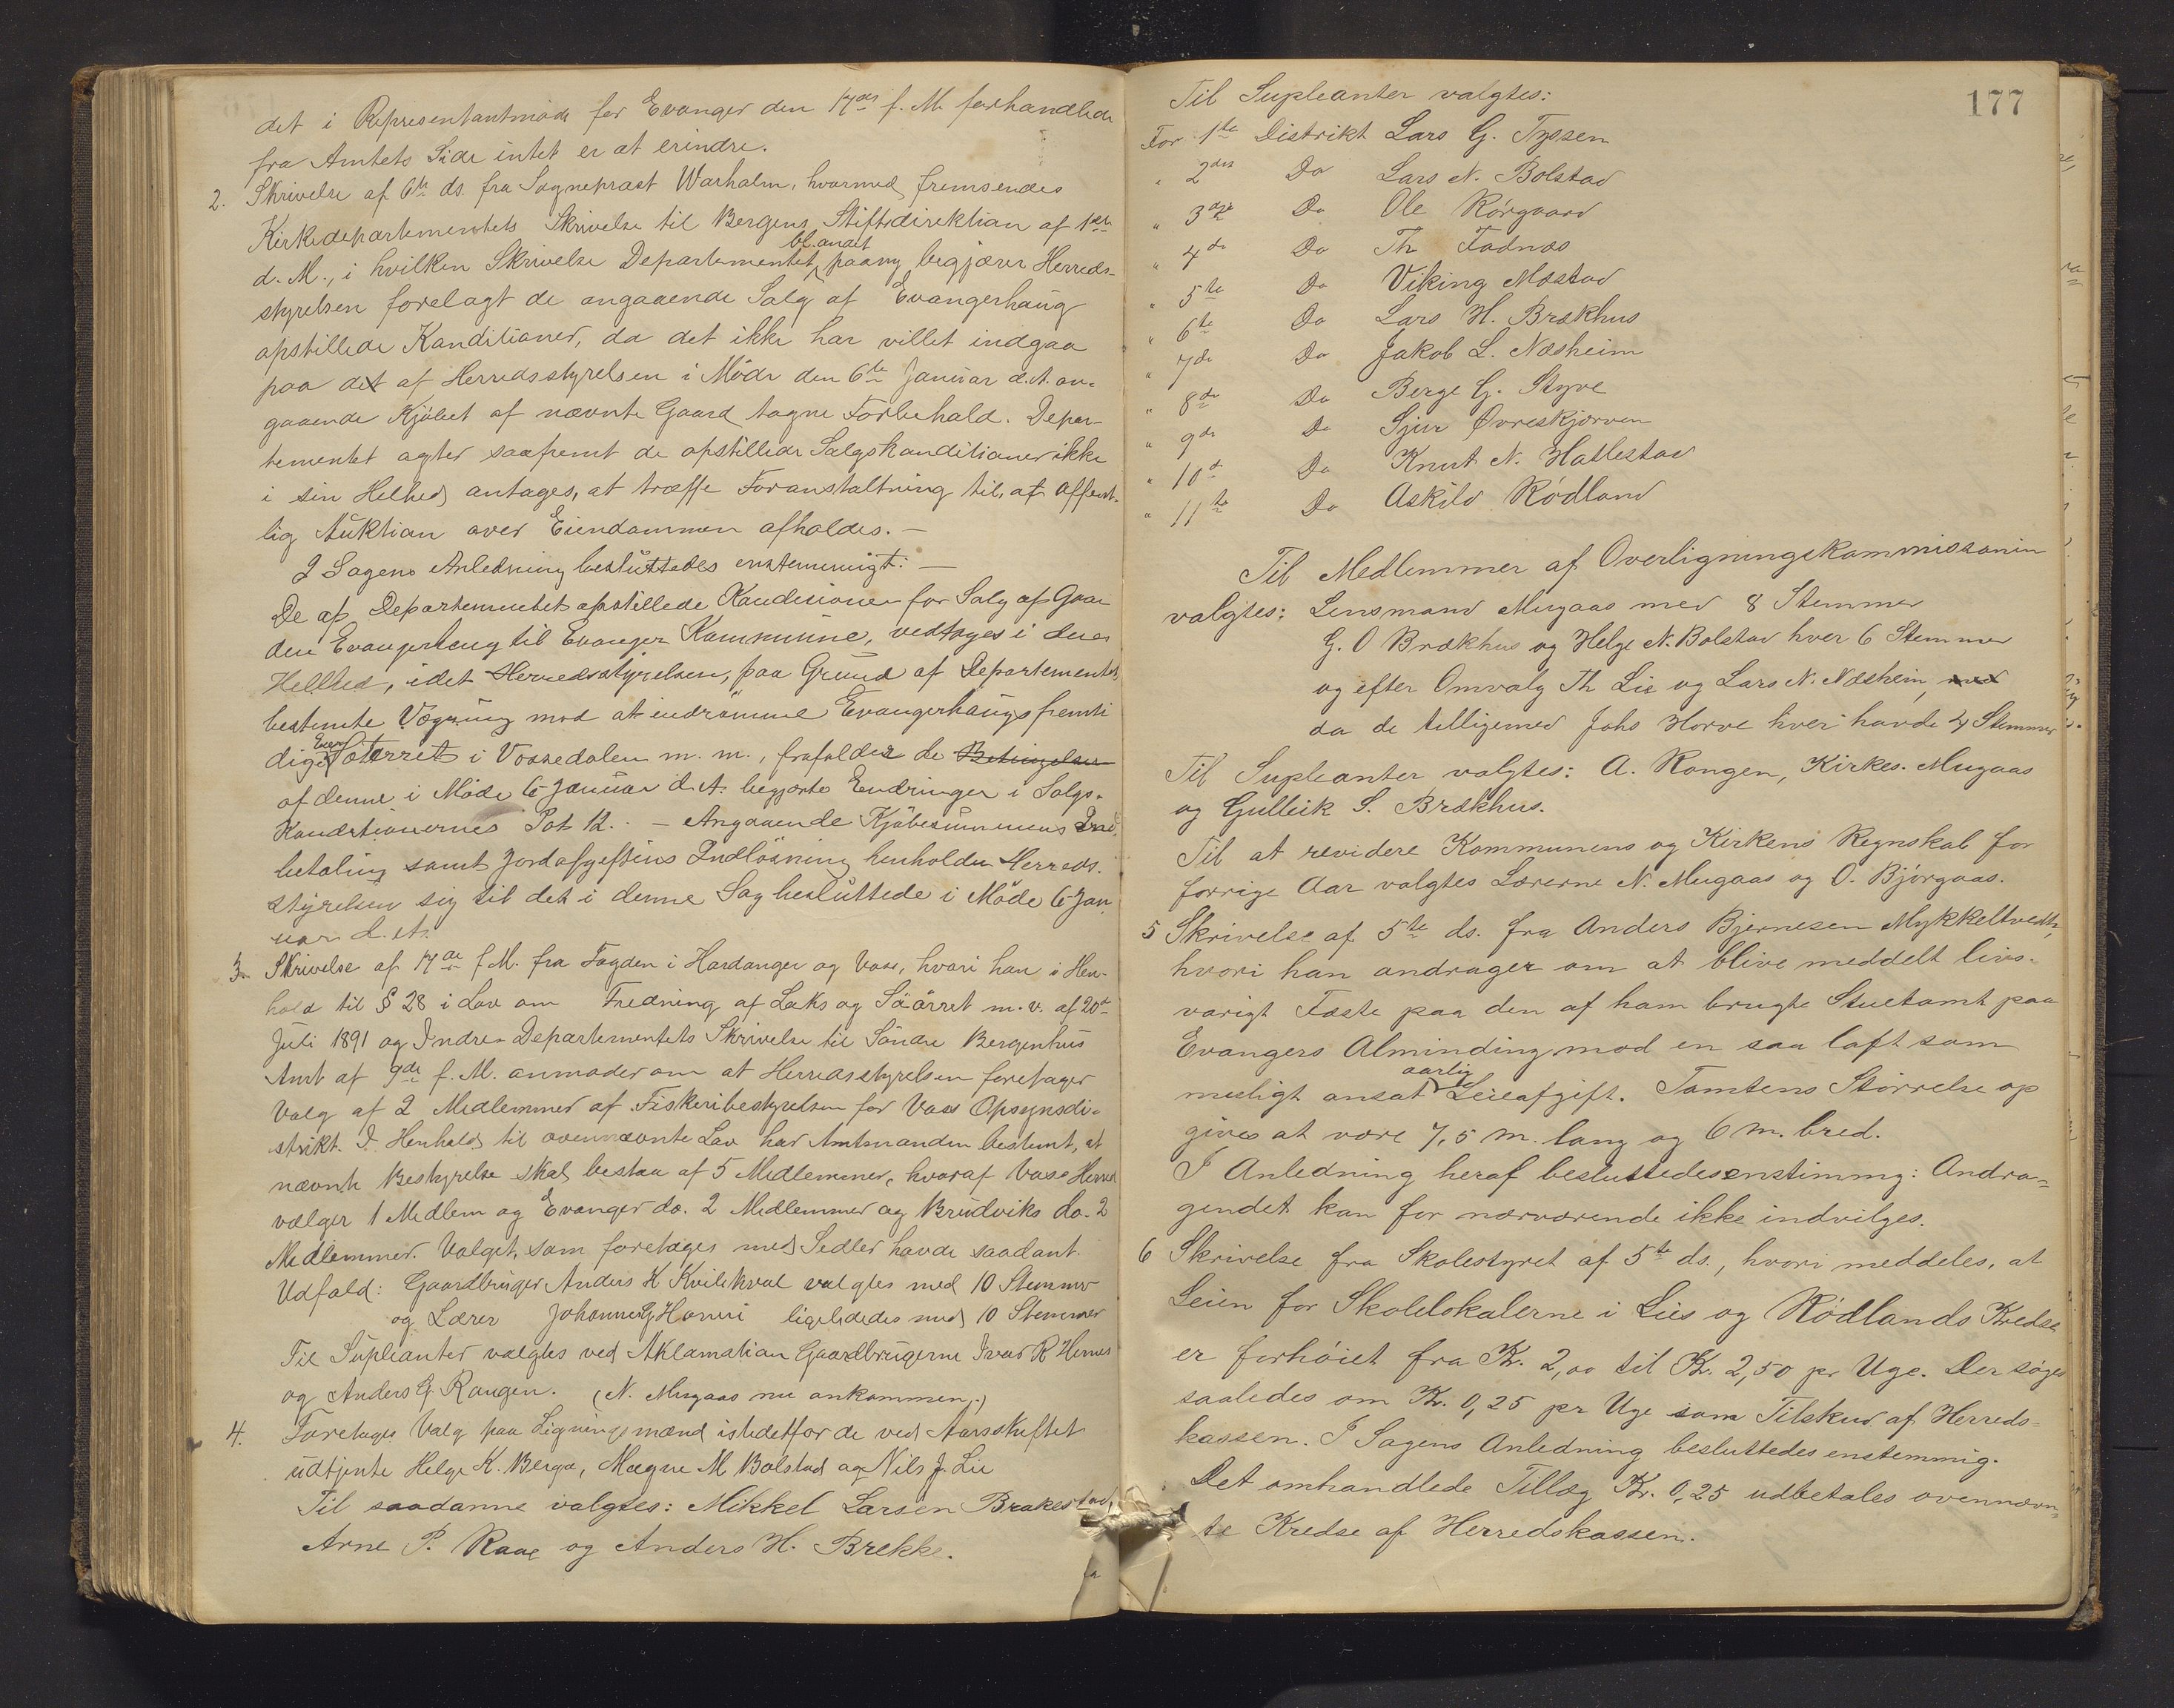 det i Representantmøde for Evanger den 17des f. M. forhandlede
fra Amtets Side intet er at erindre.
2. Skrivelse af 6te ds. fra Sognepræst Warholm, hvormed fremsendes
Kirkedepartementets Skrivelse til Bergens Stiftsdirektion af 1ste
d. M., i hvilken Skrivelse Departementet bl. andet paany begjærer Herreds-
styrelsen forelagt de angaaende Salg af Evangerhaug
opstillede Konditioner, da det ikke har villet indgaa
paa det af Herredsstyrelsen i Møde den 6te Januar d. A. an-
gaaende Kjøbet af nævnte Gaard tagne Forbehold. Depar-
tementet agter saafremt de opstillede Salgskonditioner ikke
i sin Helhed antages, at træffe Foranstaltning til, at offent-
lig Auktion over Eiendommen afholdes. —
I Sagens Anledning besluttedes enstemmigt: —
De af Departementet opstillede Konditioner for Salg af Gaar
den Evangerhaug til Evanger Kommune, vedtages i deres
Helhed, idet Herredsstyrelsen, paa Grund af Departementets
bestemte Vægring mod at indrømme Evangerhaugs fremti
dige Sæterret i Vossedalen m. m., frafalder de Betingelser
af denne i Møde 6 Januar d. A. begjærte Endringer i Salgs-
Konditionernes Post 12. — Angaaende Kjøbesummens Ind-
betaling samt Jordafgiftens Indløsning henholder Herreds-
styrelsen sig til det i denne Sag besluttede i Møde 6 Jan-
uar d. A.
3. Skrivelse af 17de f. M. fra Fogden i Hardanger og Voss, hvori han i Hen-
hold til § 28 i Lov om Fredning af Laks og Søørret m. v. af 20de
Juli 1891 og Indre-Departementets Skrivelse til Søndre Bergenhus
Amt af 9de f. M. anmoder om at Herredsstyrelsen foretager
Valg af 2 Medlemmer af Fiskeribestyrelsen for Voss Opsynsdi-
strikt. I Henhold til ovennævnte Lov har Amtmanden bestemt, at
nævnte Bestyrelse skal bestaa af 5 Medlemmer, hvoraf Voss Herred
vælger 1 Medlem og Evanger do. 2 Medlemmer og Brudviks do. 2
Medlemmer. Valget, som foretages med Sedler havde saadant
Udfald: Gaardbruger Anders K Kvilekval valgtes med 10 Stemmer
og Lærer Johannes G Horvei ligeledes med 10 Stemmer
Til Supleanter valgtes ved Aklamation Gaardbrugerne Ivar R Hernes
og Anders G. Rongen. (N. Mugaas nu ankommen.)
4. Foretages Valg paa Ligningsmænd istedetfor de ved Aarsskiftet
udtjente Helge K. Berge, Magne M Bolstad og Nils J. Lie
Til saadanne valgtes: Mikkel Larsen Brakestad,
Arne P. Raae og Anders H. Brekke.
177
Til Supleanter valgtes:
For 1ste Distrikt Lars G. Tyssen
" 2det Do Lars N. Bolstad
" 3die Do Ole Rørgaard
" 4de Do Th Fadnæs
" 5te Do Viking Mæstad
" 6te Do Lars H. Brækhus
" 7de Do Jakob L. Næsheim
" 8de Do Berge G. Styve
" 9de Do Sjur Øvreskjorven
" 10de Do Knut N. Hatlestad
" 11te Do Askild Rødland
Til Medlemmer af Overligningskommissonin
valgtes: Lensmand Mugaas med 8 Stemmer
G. O Brækhus og Helge N. Bolstad hver 6 Stemmer
og efter Omvalg Th Lie og Lars N. Næsheim, med
da de tilligemed Johs Horve hver havde 4 Stemmer
Til Supleanter valgtes: A. Rongen, Kirkes. Mugaas
og Gulleik S. Brækhus.
Til at revidere Kommunens og Kirkens Regnskab for
forrige Aar valgtes Lærerne N. Mugaas og O. Bjørgaas.
5 Skrivelse af 5te ds. fra Anders Bjernesen Mykkeltvedt,
hvori han andrager om at blive meddelt livs-
varigt Fæste paa den af ham brugte Stuetomt paa
Evangers Alminding mod en saa laft som
muligt ansat aarlig Leieafgift. Tomtens Størrelse op
gives at være 7,5 m. lang og 6 m. bred.
I Anledning heraf besluttedes enstimmg: Andra-
gendet kan for nærværende ikke indvilges.
6 Skrivelse fra Skolestyret af 5te ds., hvori meddeles, at
Leien for Skolelokalerne i Lies og Rødlands Kredse
er forhøiet fra Kr. 2,00 til Kr. 2,50 pr Uge. Der søges
saaledes om Kr. 0,25 pr Uge som Tilskud af Herreds-
kassen. I Sagens Anledning besluttedes enstemmig.
Det omhandlede Tillæg Kr. 0,25 udbetales ovennævn-
te Kredse af Herredskassen.